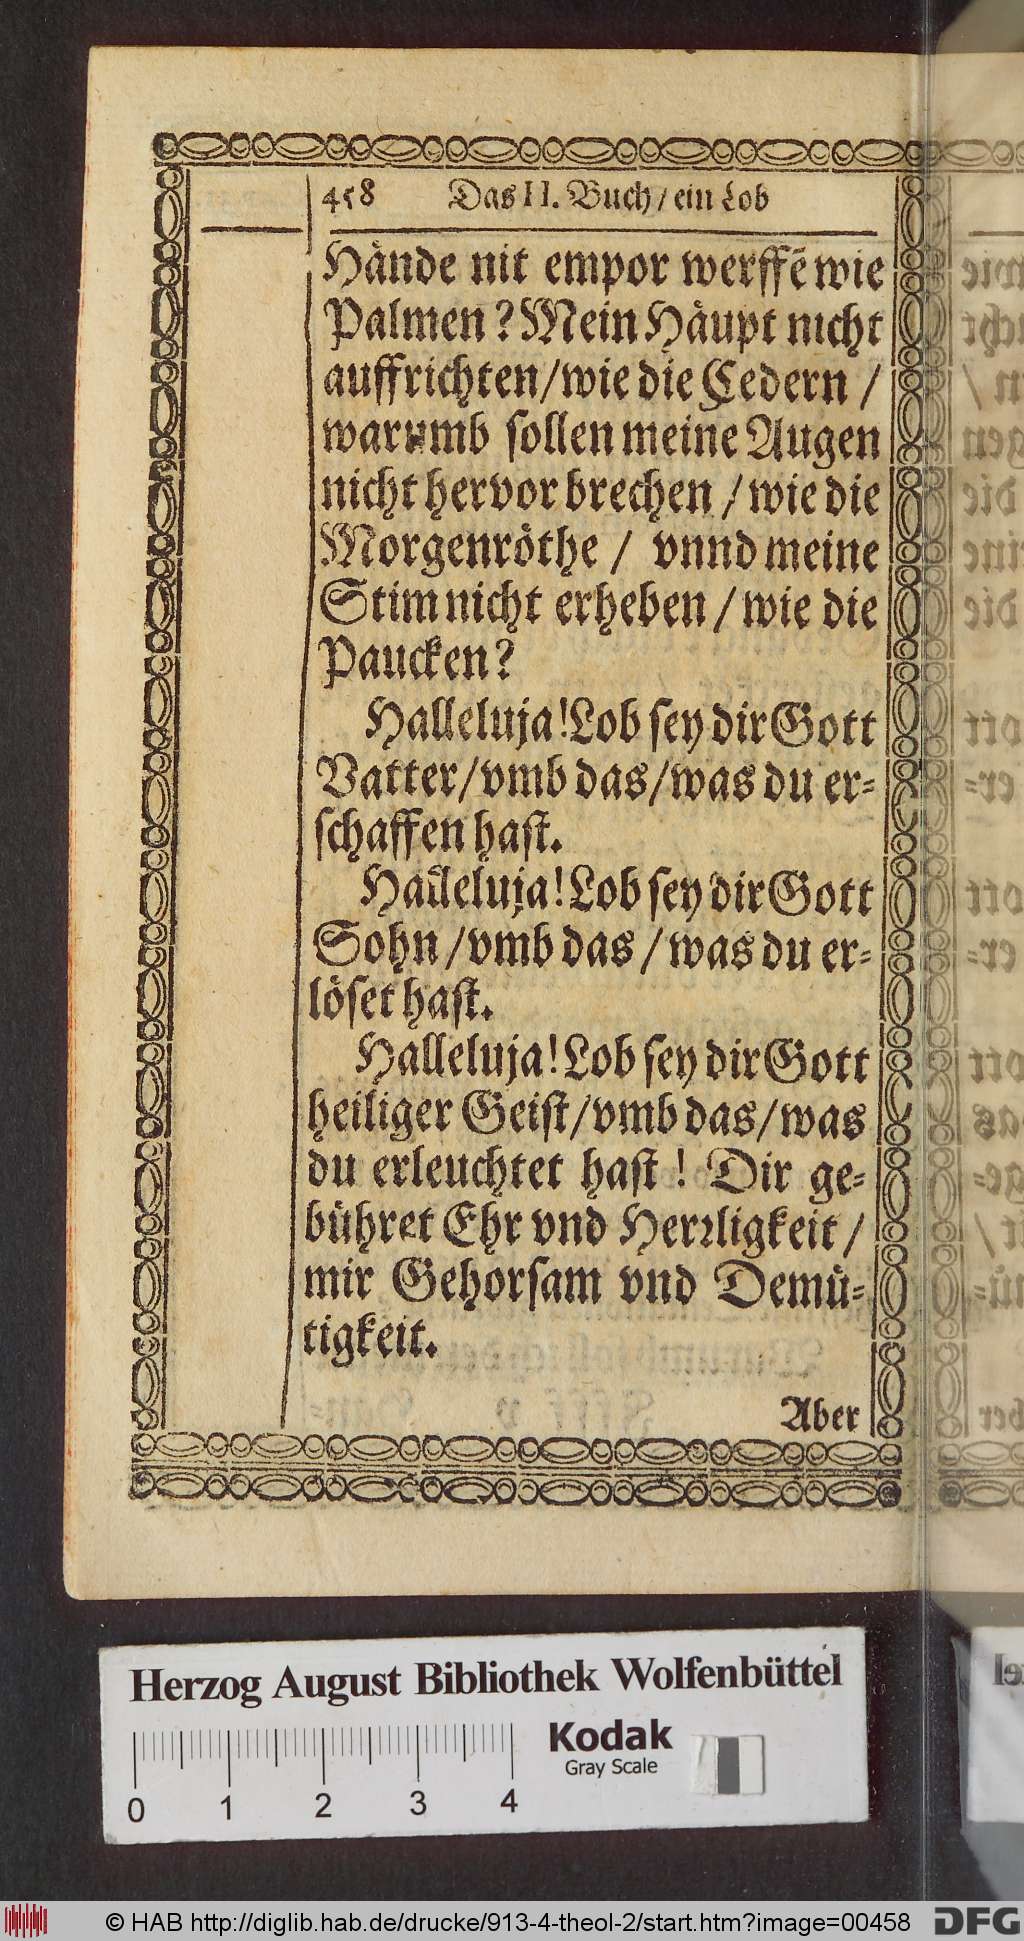 458 Das II. Buch / ein Lob
Hände nit empor werffẽ wie
Palmen? Mein Häupt nicht
auffrichten / wie die Cedern /
warumb sollen meine Augen
nicht hervor brechen / wie die
Morgenröthe / vnnd meine
Stim nicht erheben / wie die
Paucken?
Halleluja! Lob sey dir Gott
Vatter / vmb das / was du er-
schaffen hast.
Halleluja! Lob sey dir Gott
Sohn / vmb das / was du er-
löset hast.
Halleluja! Lob sey dir Gott
heiliger Geist / vmb das / was
du erleuchtet hast! Dir ge-
bühret Ehr vnd Herrligkeit /
mir Gehorsam vnd Demü-
tigkeit.
Aber
Herzog August Bibliothek Wolfenbüttel
Kodak
Gray Scale
0 1 2 3 4
© HAB http://diglib.hab.de/drucke/913-4-theol-2/start.htm?image=00458
DFG